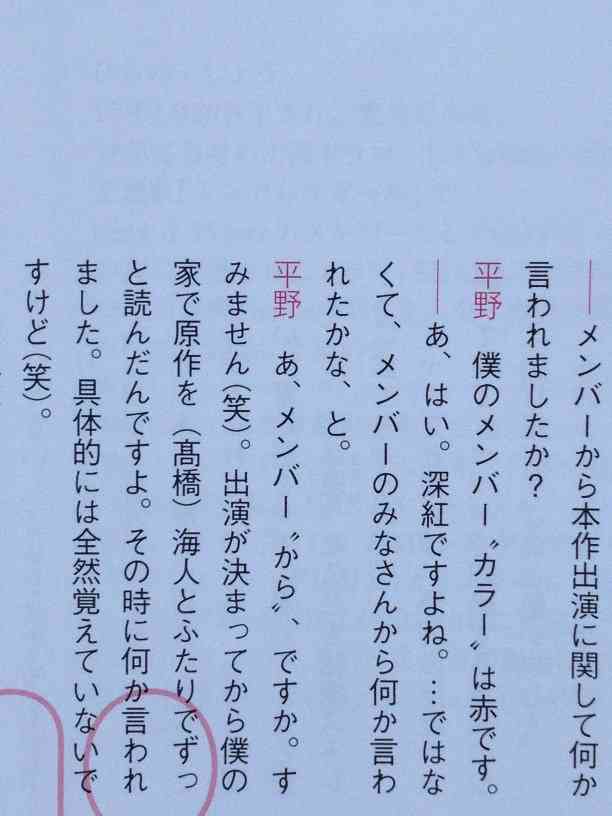 ――メンバーから本作出演に関して何か
言われましたか?
平野　僕のメンバー〝カラー〟は赤です。
――あ、はい。深紅ですよね。…ではな
くて、メンバーのみなさんから何か言わ
れたかな、と。
平野　あ、メンバー〝から〟、ですか。す
みません(笑)。出演が決まってから僕の
家で原作を（髙橋）海人とふたりでずっ
と読んだんですよ。その時に何か言われ
ました。具体的には全然覚えていないで
すけど(笑)。